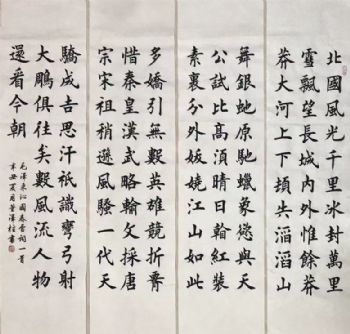 北國風光千里冰封萬里
雪飄望長城內外惟餘莽
莽大河上下頓失滔滔山
舞銀蛇原馳蠟象慾與天
公試比高須晴日看紅裝
素裹分外妖嬈江山如此
多嬌引無數英雄競折腰
惜秦皇漢武略輸文採唐
宗宋祖稍遜風騷一代天
驕成吉思汗祇識彎弓射
大鵰俱往矣數風流人物
還看今朝
毛澤東沁園春雪詞一首
辛丑夏月董澤柱書